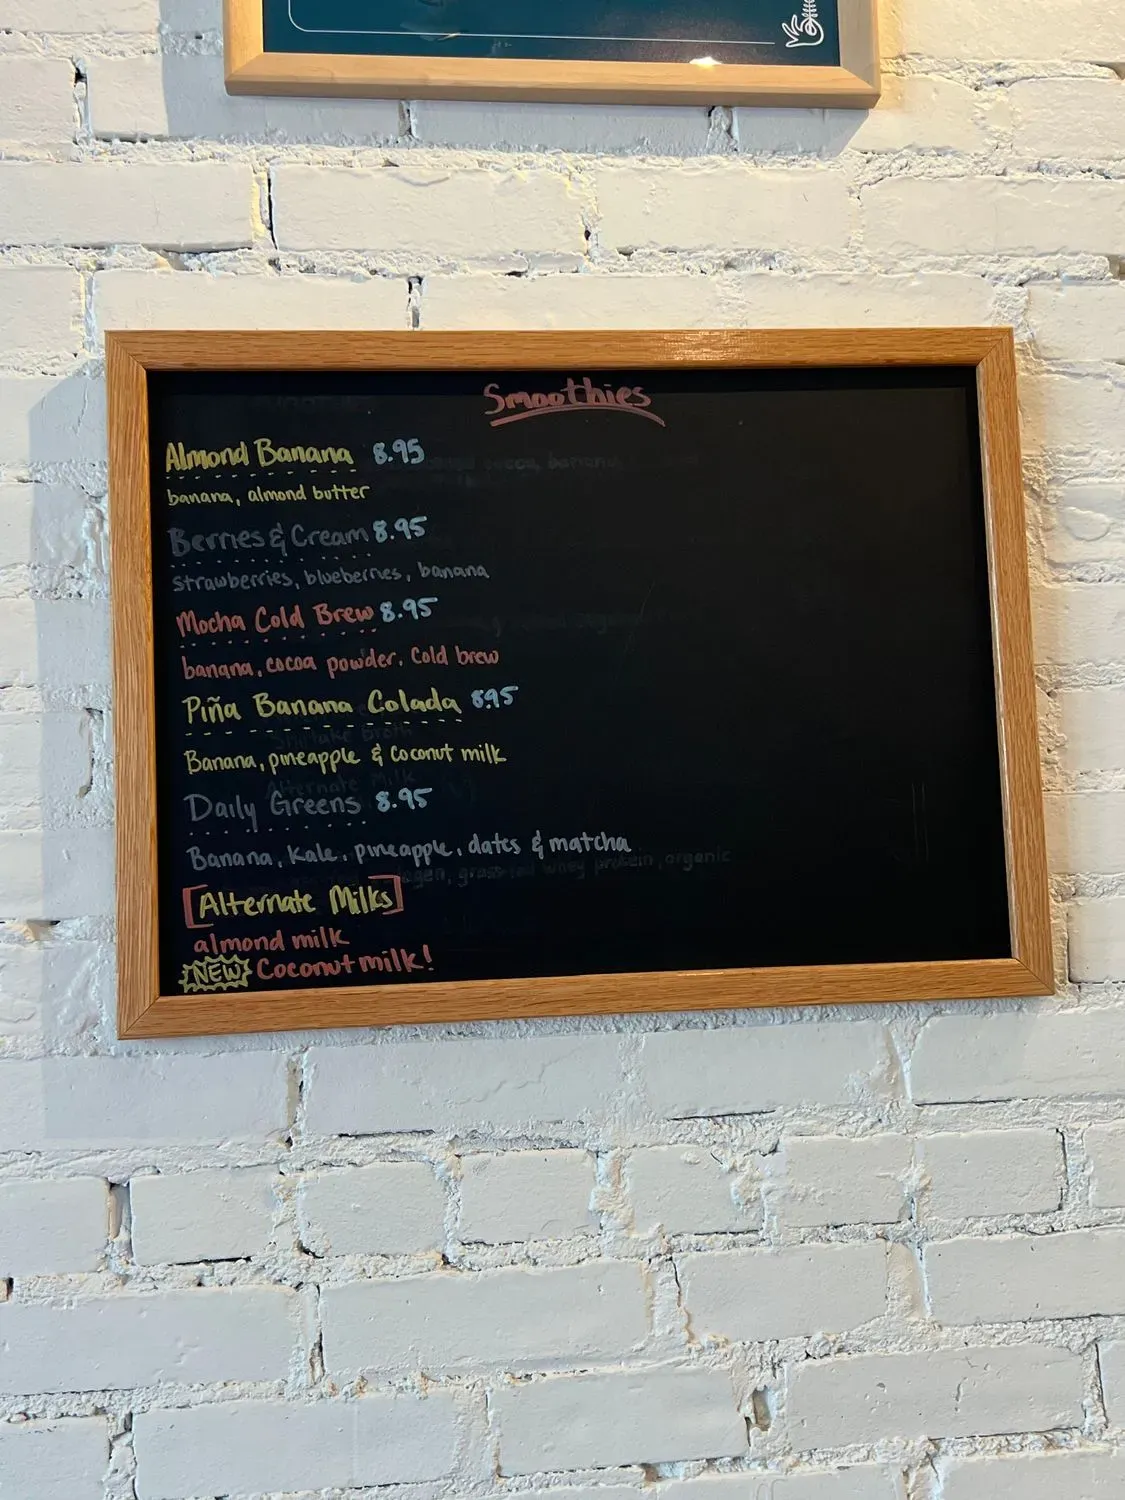 Smoothies
Almond Banana 8.95
banana, almond butter
Berries & Cream 8.95
Strawberries, blueberries, banana
Mocha Cold Brew 8.95
banana, cocoa powder, Cold brew
Piña Banana Colada 8.95
Shiitake Broth
Banana, pineapple & Coconut milk
Alternate Milk
Daily Greens 8.95
Banana, Kale, pineapple, dates & matcha
whey protein, organic
[Alternate Milks]
almond milk
NEW Coconut milk!